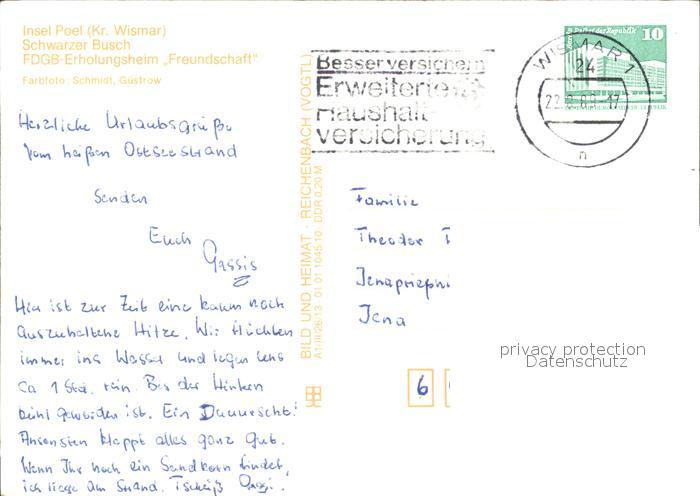 Insel Poel (Kr. Wismar)
Schwarzer Busch
FDGB-Erholungsheim „Freundschaft"
Farbfoto: Schmidt, Güstrow
Herzliche Urlaubsgrüße
vom heißen Ostseestrand
Senden
Euch
Gassis
Hier ist zur Zeit eine kaum noch
auszuhaltene Hitze. Wir flüchten
immer ins Wasser und legen uns
ca 1 Std. rein. Bis der Hintern
kühl geworden ist. Ein Duuurscht!
Ansonsten klappt alles ganz gut.
Wenn Ihr noch ein Sandkorn findet,
ich liege am Strand. Tschüß Gassi.
BILD UND HEIMAT · REICHENBACH (VOGTL)
A1/III/26/13 01 01 1045/10 DDR 0,20 M
Besser versichern
Erweiterte
Haushalt-
versicherung
WISMAR 1
24
17
n
10
Familie
Theodor
Jena
6
privacy protection
Datenschutz